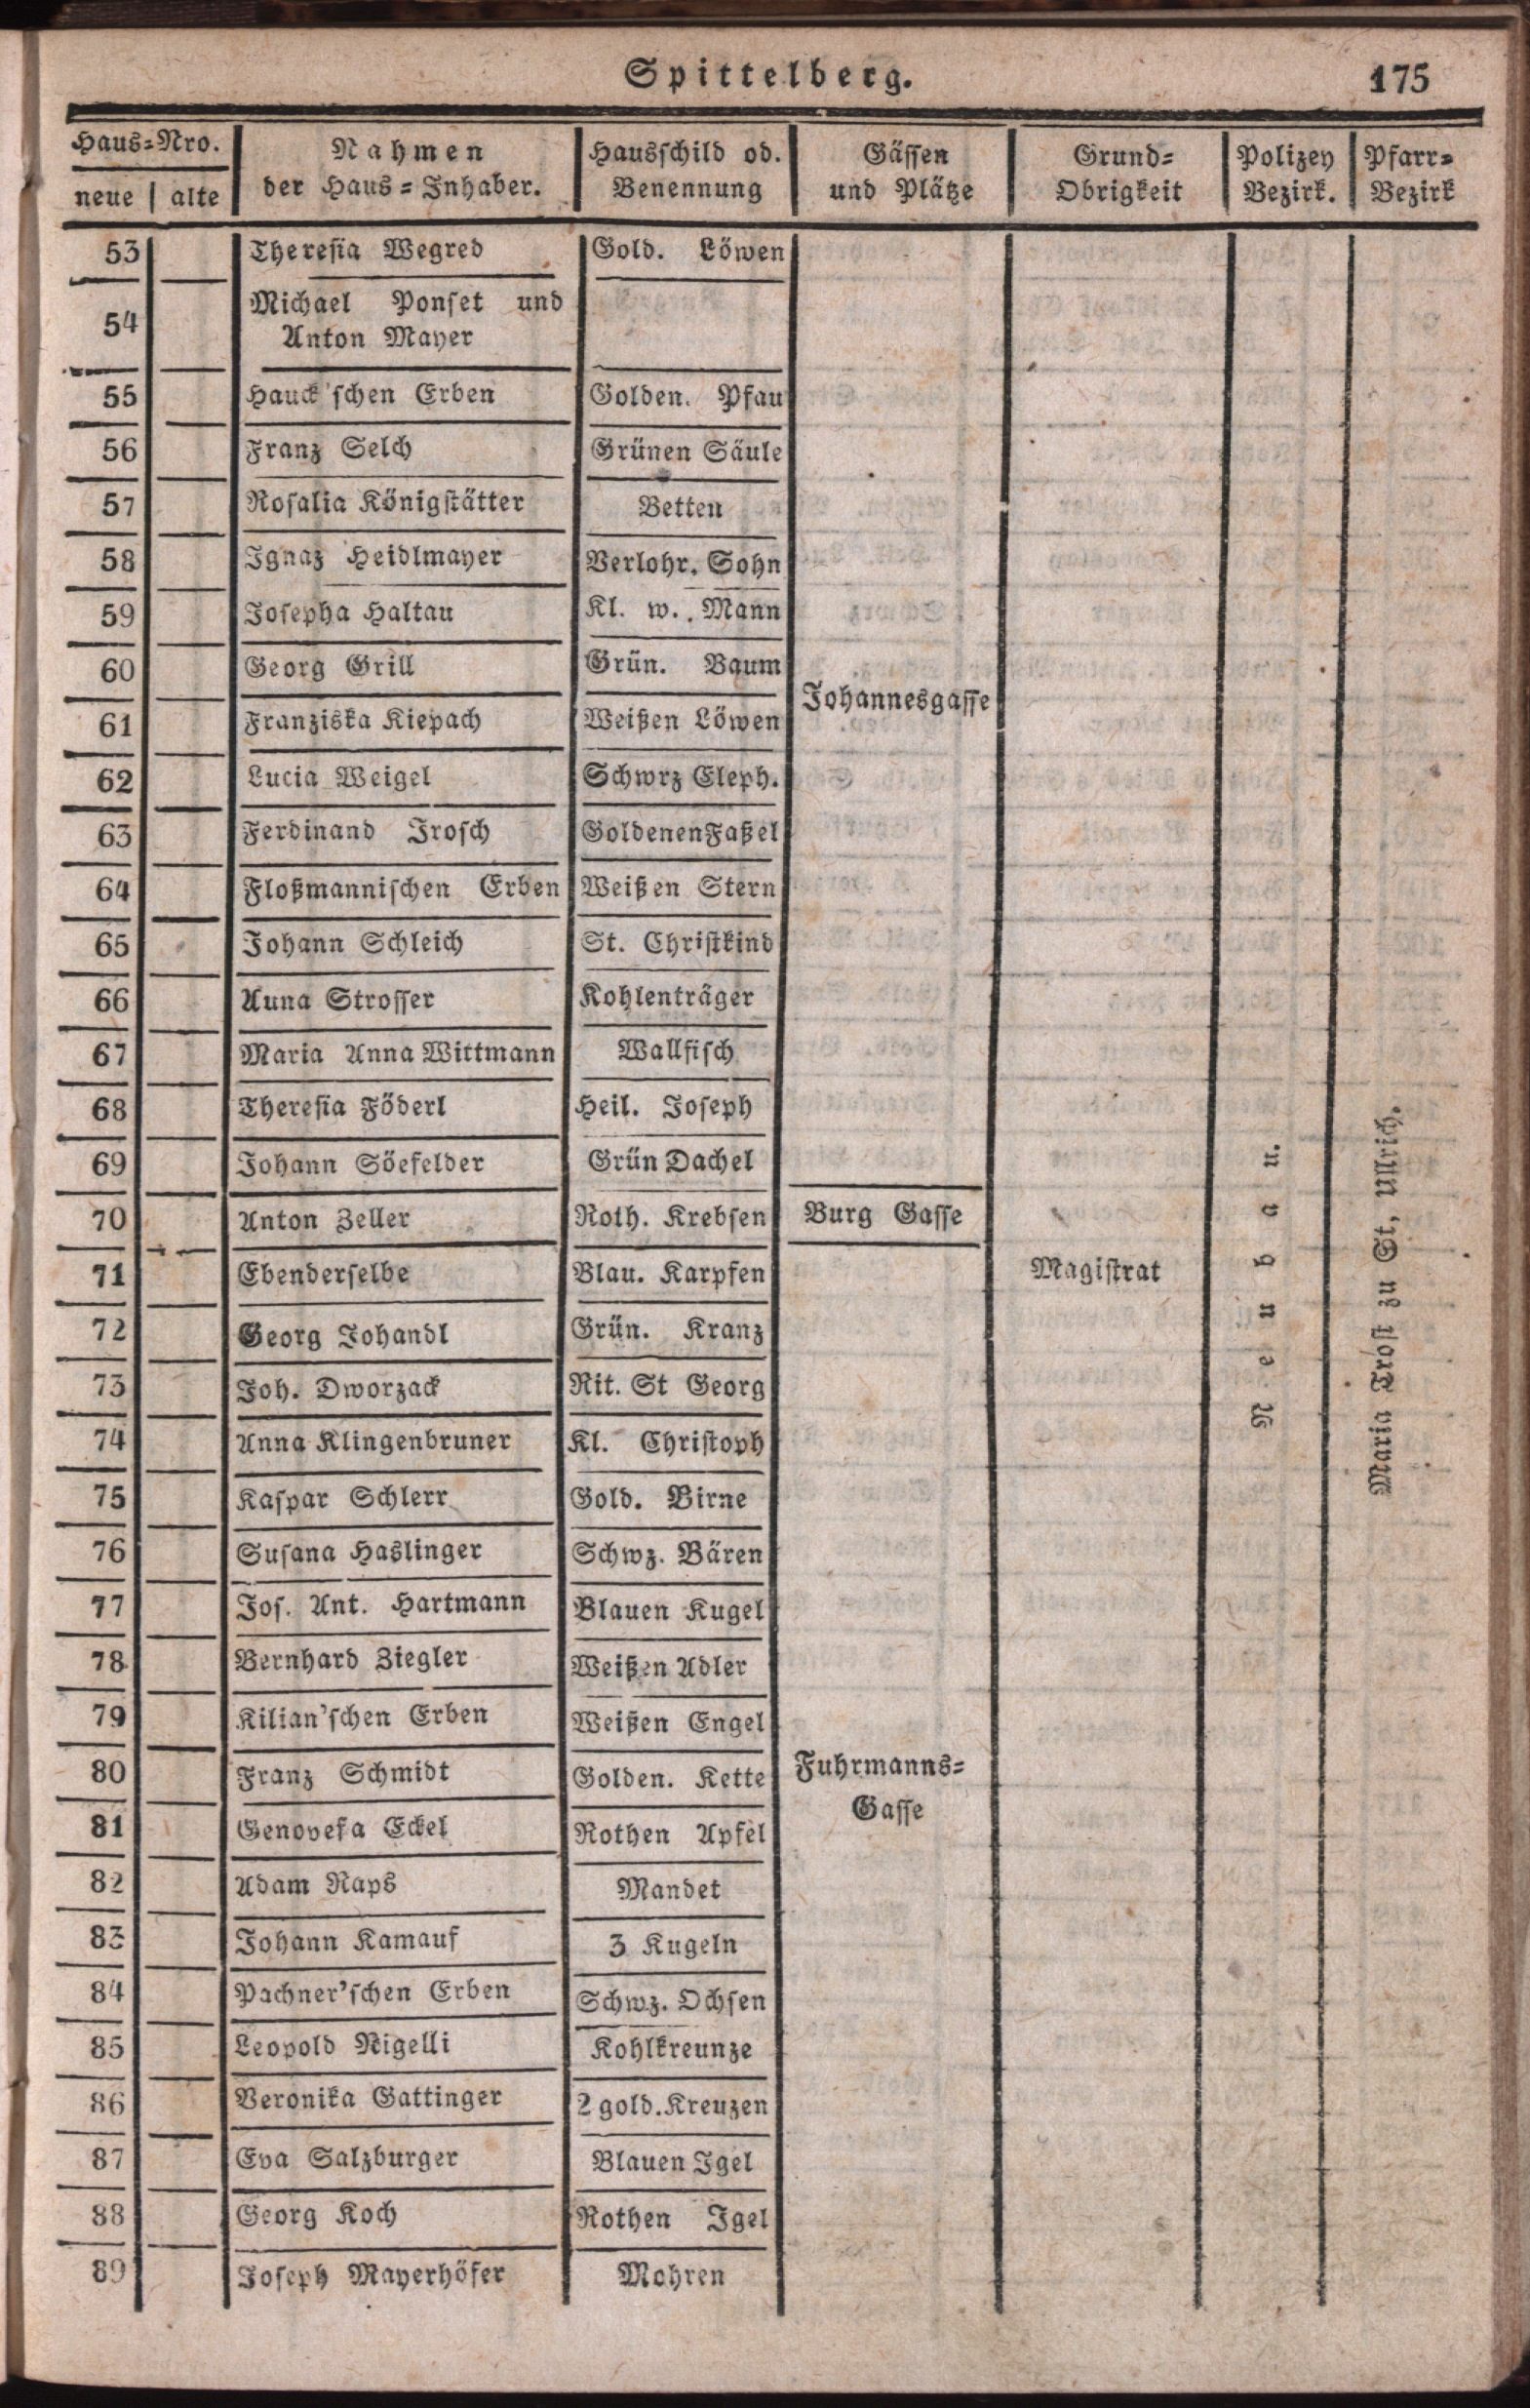 Spittelberg. 175
Haus=Nro. Nahmen Hausschild od. Gässen Grund= Polizey Pfarr=
neue alte der Haus=Inhaber. Benennung und Plätze Obrigkeit Bezirk. Bezirk
53 Theresia Wegred Gold. Löwen
54 Michael Ponset und
Anton Mayer
55 Hauck'schen Erben Golden. Pfau
56 Franz Selch Grünen Säule
57 Rosalia Königstätter Betten
58 Ignaz Heidlmayer Verlohr. Sohn
59 Josepha Haltau Kl. w. Mann
60 Georg Grill Grün. Baum
Johannesgasse
61 Franziska Kiepach Weißen Löwen
62 Lucia Weigel Schwrz Eleph.
63 Ferdinand Irosch Goldenen Faßel
64 Floßmannischen Erben Weißen Stern
65 Johann Schleich St. Christkind
66 Auna Strosser Kohlenträger
67 Maria Anna Wittmann Wallfisch
68 Theresia Föderl Heil. Joseph
69 Johann Söefelder Grün Dachel
70 Anton Zeller Roth. Krebsen Burg Gasse
71 Ebenderselbe Blau. Karpfen Magistrat Neubau. Maria Trost zu St, Ullrich.
72 Georg Johandl Grün. Kranz
73 Joh. Dworzack Rit. St Georg
74 Anna Klingenbruner Kl. Christoph
75 Kaspar Schlerr Gold. Birne
76 Susana Haslinger Schwz. Bären
77 Jos. Ant. Hartmann Blauen Kugel
78 Bernhard Ziegler Weißen Adler
79 Kilian'schen Erben Weißen Engel
80 Franz Schmidt Golden. Kette Fuhrmanns=
Gasse
81 Genovefa Eckel Rothen Apfel
82 Adam Raps Mandet
83 Johann Kamauf 3 Kugeln
84 Pachner'schen Erben Schwz. Ochsen
85 Leopold Rigelli Kohlkreunze
86 Veronika Gattinger 2 gold. Kreuzen
87 Eva Salzburger Blauen Igel
88 Georg Koch Rothen Igel
89 Joseph Mayerhöfer Mohren